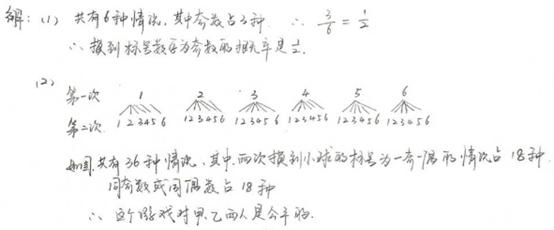 解:(1) 共有6种情况,其中奇数占3种 ∴ 3/6 = 1/2
∴ 摸到标号数字为奇数的概率是1/2.
(2)
第一次 1 2 3 4 5 6
第二次 123456 123456 123456 123456 123456 123456
如图,共有36种情况,其中,两次摸到小球的标号为一奇一偶的情况占18种.
同奇数或同偶数占18种
∴ 这个游戏对甲、乙两人是公平的.